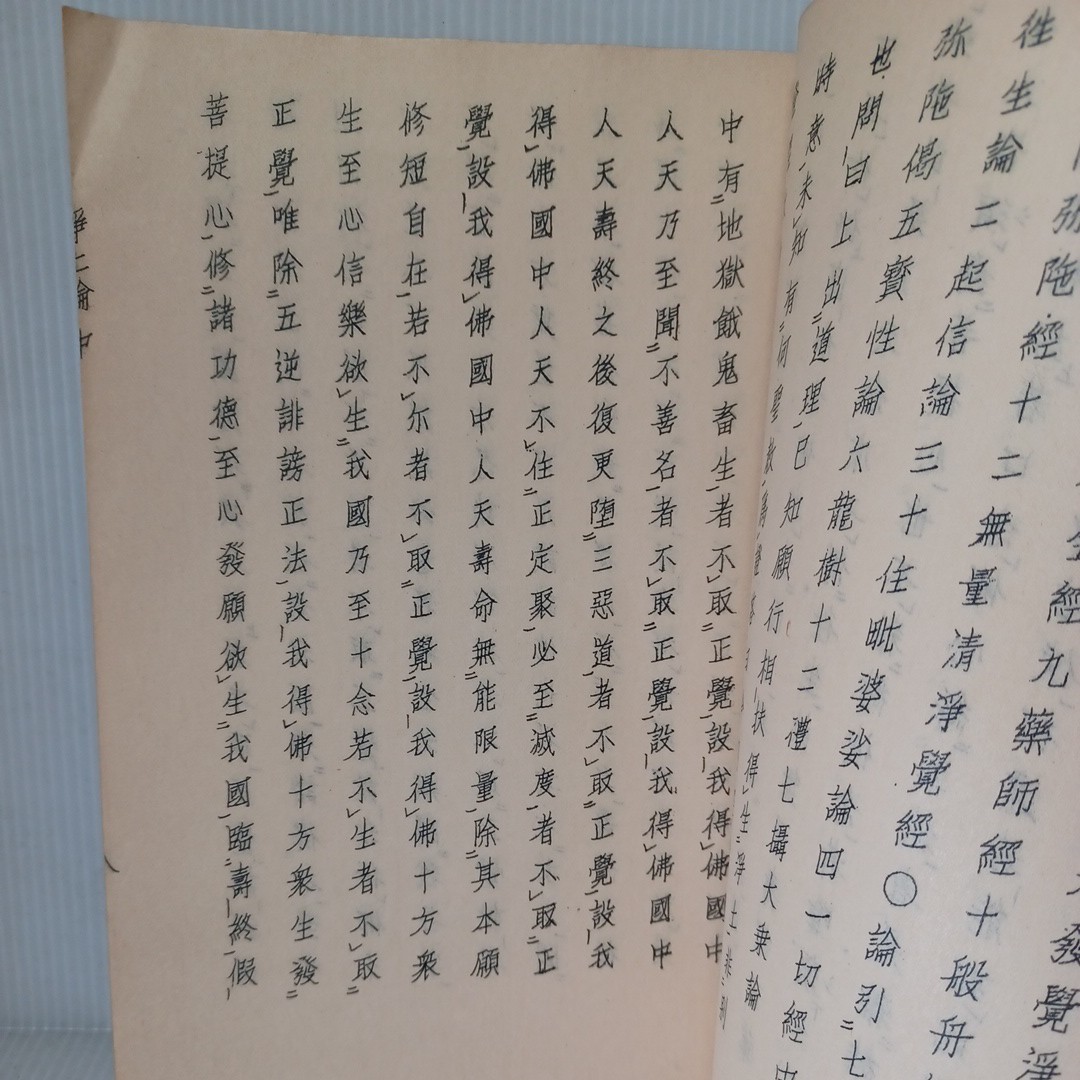 弥陁経十二無量清淨覺経〇論引七
往生論二起信論三十住毗婆娑論四一切経中
弥陁偈五寶性論六龍樹十二禮七攝大乗論
也問曰上出道理已知願行相扶得生淨土
時意未知有何聖教爲證
中有地獄餓鬼畜生者不取正覺設我得佛國中
人天乃至聞不善名者不取正覺設我得佛國中
人天壽終之後復更堕三惡道者不取正覺設我
得佛國中人天不住正定聚必至滅度者不取正
覺設我得佛國中人天壽命無能限量除其本願
修短自在若不尔者不取正覺設我得佛十方衆
生至心信樂欲生我國乃至十念若不生者不取
正覺唯除五逆誹謗正法設我得佛十方衆生發
菩提心修諸功德至心發願欲生我國臨壽終假